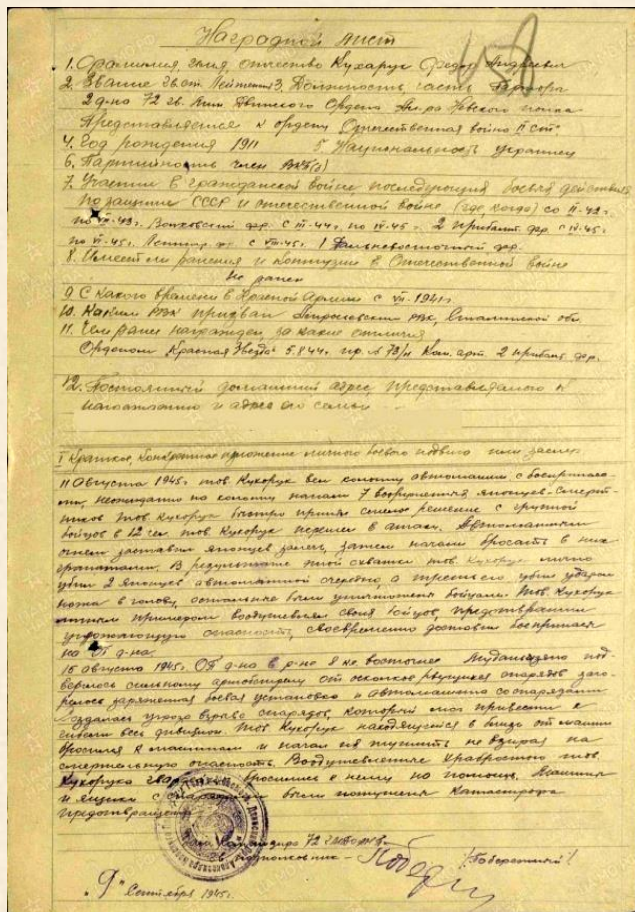 458
Наградной лист
1. Фамилия, имя, отчество Кухарук Федор Андреевич
2. Звание Гв. ст. Лейтенант 3. Должность, часть
2 д-на 72 гв. Мин. Двинского Ордена Ал-ра Невского полка
Представляется к ордену Отечественная война II ст.
4. Год рождения 1911 5. Национальность украинец
6. Партийность член ВКП(б)
7. Участие в гражданской войне, последующих боевых действиях
по защите СССР и отечественной войне (где, когда) со II-42г.
по 43г. Волховский фр. с II-44г. по IV-45г. 2 прибалт. фр. с IV-45г.
по VI-45г. Ленингр. фр. с VIII-45г. 1 Дальневосточный фр.
8. Имеет ли ранения и контузии в Отечественной войне
Не ранен
9. С какого времени в Красной Армии с VII-1941г.
10. Каким РВК призван РВК, Сталинской обл.
11. Чем ранее награжден за какие отличия
Орденом "Красная Звезда" 5.8.44г. пр. № 73/н Ком. арт. 2 прибалт. фр.
12. Постоянный домашний адрес, представляемого к
награждению и адрес его семьи
I Краткое, конкретное изложение личного боевого подвига или заслуг
11 Августа 1945г. тов. Кухарук вел колонну автомашин с боеприпаса-
ми, неожиданно на колонну напали 7 вооруженных японцев-смерт-
ников. Тов. Кухарук быстро принял смелое решение с группой
бойцов в 12 чел. тов. Кухарук перешел в атаку. Автоматным
огнем заставил японцев залечь, затем начали бросать в них
гранатами. В результате этой схватки тов. Кухарук лично
убил 2 японцев автоматной очередью, а третьего убил ударом
ножа в голову, остальные были уничтожены бойцами. Тов. Кухарук
личным примером воодушевляя своих бойцов, предотвратил
угрожающую опасность, своевременно доставил боеприпасы
на ОП д-на.
15 августа 1945г. ОП д-на в р-не 8 км восточнее Муданьцзяна под-
верглось сильному артобстрелу от осколков рвущихся снарядов заго-
релась заряженная боевая установка и автомашина со снарядами
Создалась угроза взрыва снарядов, который мог привести к
гибели весь дивизион. Тов. Кухарук находящийся в близи от машин
бросился к машинам и начал их тушить не взирая на
смертельную опасность. Воодушевленные храбростью тов.
Кухарука бросились к нему на помощь. Машины
и ящики с снарядами были потушены. Катастрофа
предотвращена.
Командира 72
подполковник - /Побережный/
"9" Сентября 1945г.